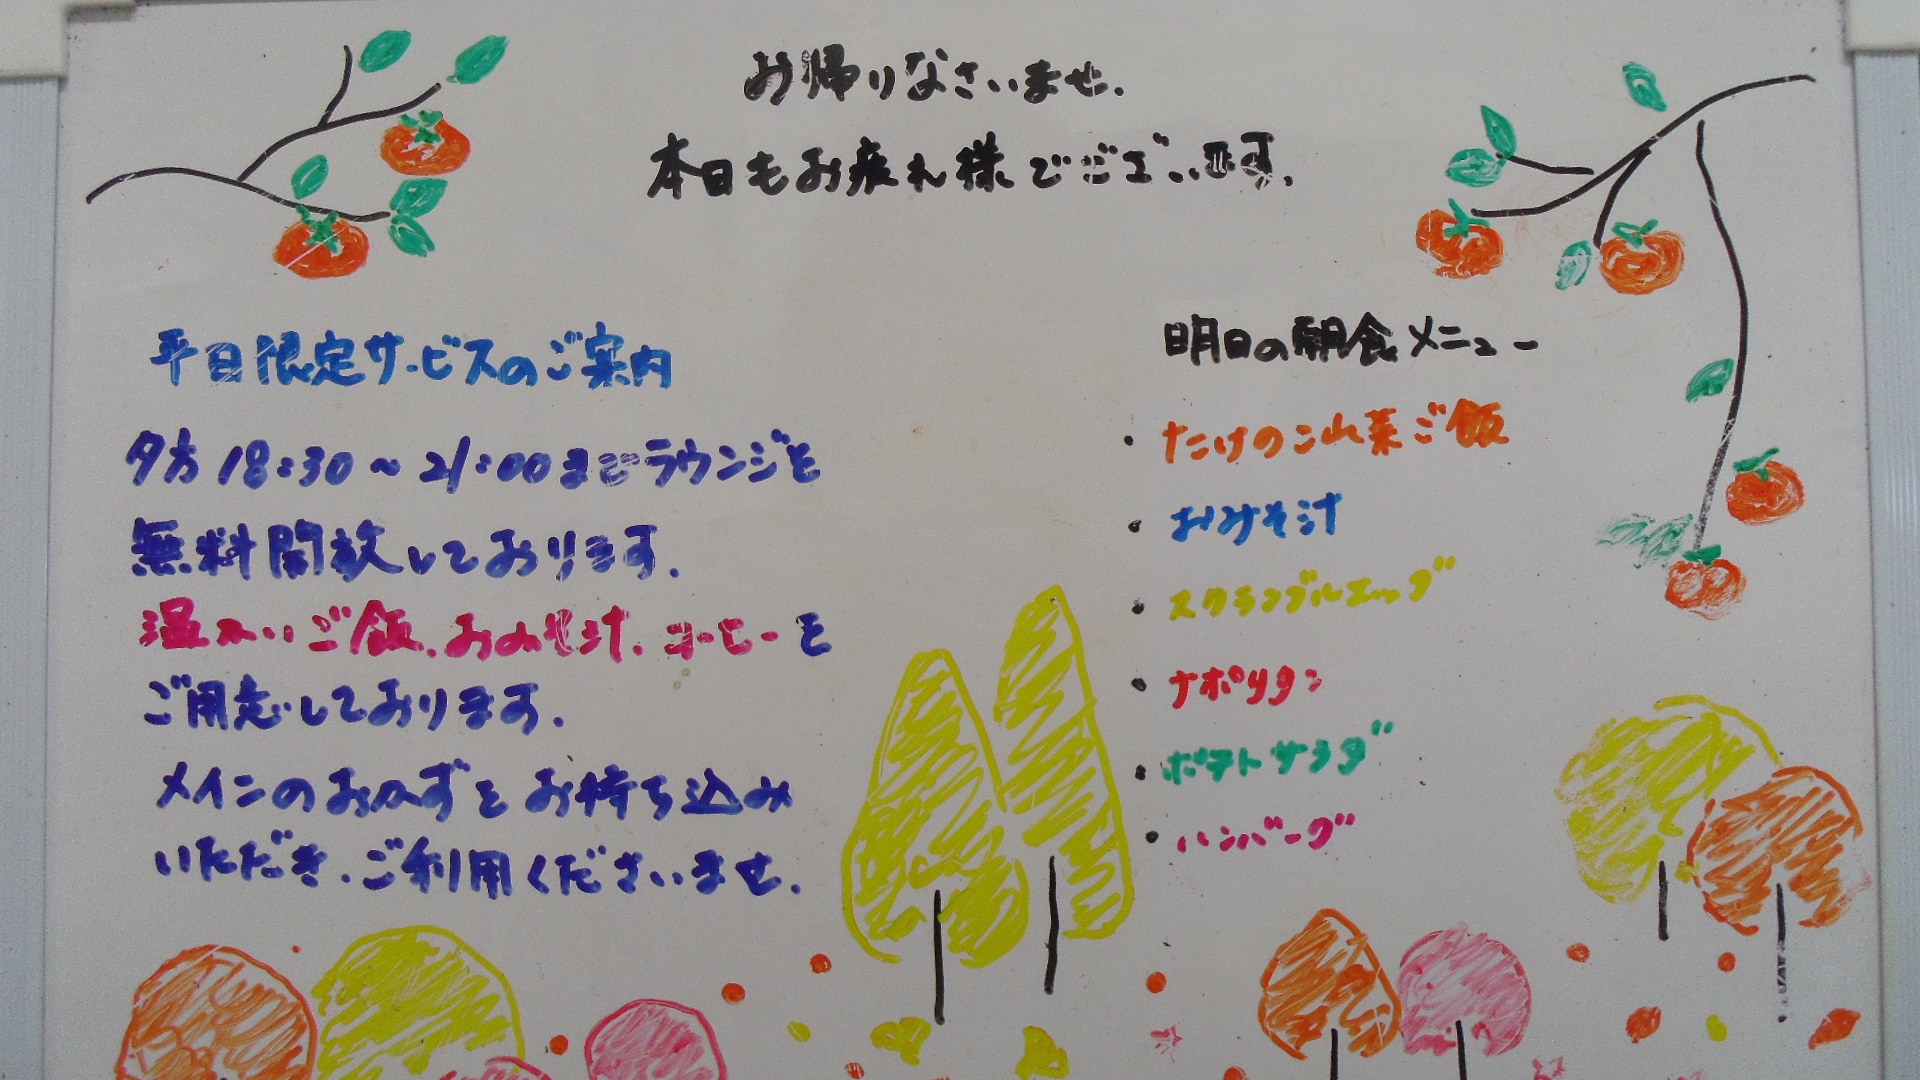 お帰りなさいませ.
本日もお疲れ様でございます.
平日限定サービスのご案内
夕方18:30～21:00までラウンジを
無料開放しております.
温かいご飯.おみそ汁.コーヒーを
ご用意しております.
メインのおかずをお持ち込み
いただき.ご利用くださいませ.
明日の朝食メニュー
・たけのこ山菜ご飯
・おみそ汁
・スクランブルエッグ
・ナポリタン
・ポテトサラダ
・ハンバーグ